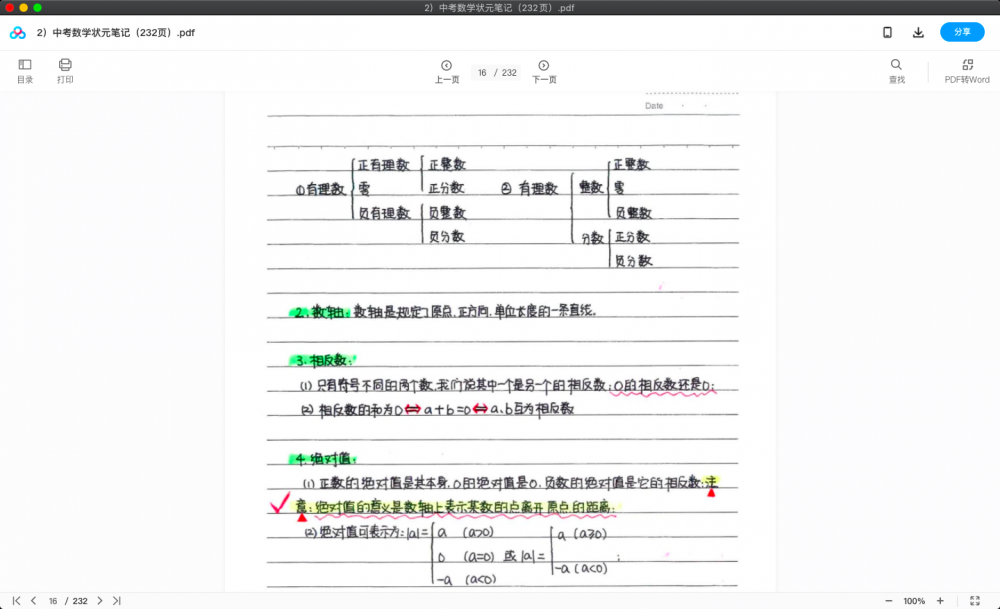 2）中考数学状元笔记（232页）.pdf
2）中考数学状元笔记（232页）.pdf
分享
目录
打印
上一页
16 / 232
下一页
查找
PDF转Word
Date
①有理数
正有理数
正整数
正分数
零
负有理数
负整数
负分数
② 有理数
整数
正整数
零
负整数
分数
正分数
负分数
2.数轴:数轴是规定了原点.正方向.单位长度的一条直线。
3.相反数:
(1) 只有符号不同的两个数,我们说其中一个是另一个的相反数;0的相反数还是0;
(2) 相反数的和为0⇔a+b=0⇔a、b互为相反数
4.绝对值:
(1) 正数的绝对值是其本身,0的绝对值是0,负数的绝对值是它的相反数;注
意:绝对值的意义是数轴上表示某数的点离开原点的距离;
(2)绝对值可表示为:|a|= a (a>0)
0 (a=0) 或 |a|= a (a≥0)
-a (a<0) -a (a<0) ;
16 / 232
100%